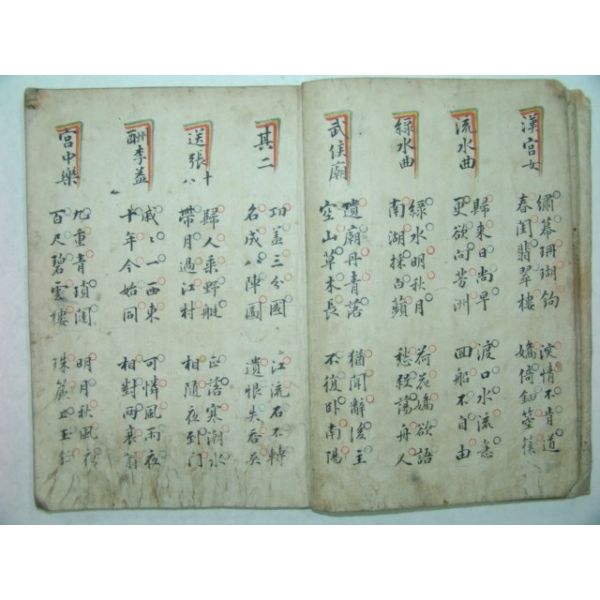 漢宮女
繡幕珊瑚鉤
春閨翡翠樓
深情不肯道
嬌倚鈿箜篌
流水曲
歸來日尚早
更欲向芳洲
渡口水流急
回船不自由
綠水曲
綠水明秋月
南湖採白蘋
荷花嬌欲語
愁殺蕩舟人
武侯廟
遺廟丹青落
空山草木長
猶聞辭後主
不復臥南陽
其二
功盖三分國
名成八陣圖
江流石不轉
遺恨失吞吳
送張十八
歸人乘野艇
帶月過江村
正落寒潮水
相隨夜到門
酬李益
戚〻一西東
十年今始同
可憐風雨夜
相對兩衰翁
宮中樂
九重青瑣闥
百尺碧雲樓
明月秋風
珠簾上玉鉤